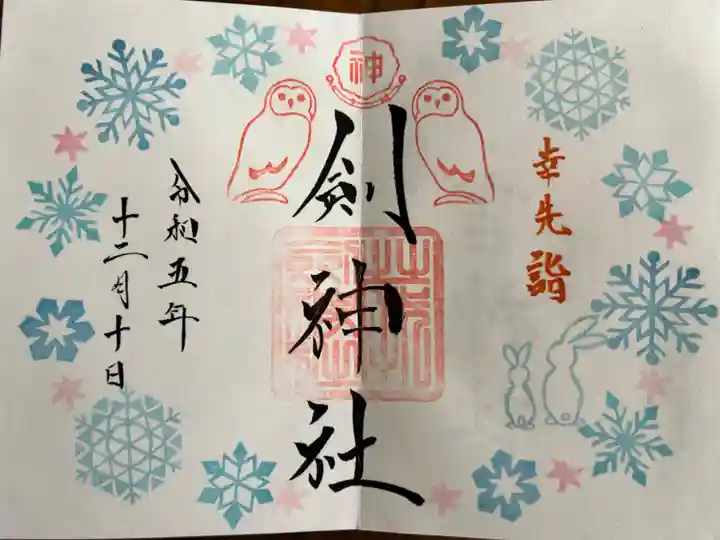 幸先詣
神
剣神社
令和五年
十二月十日